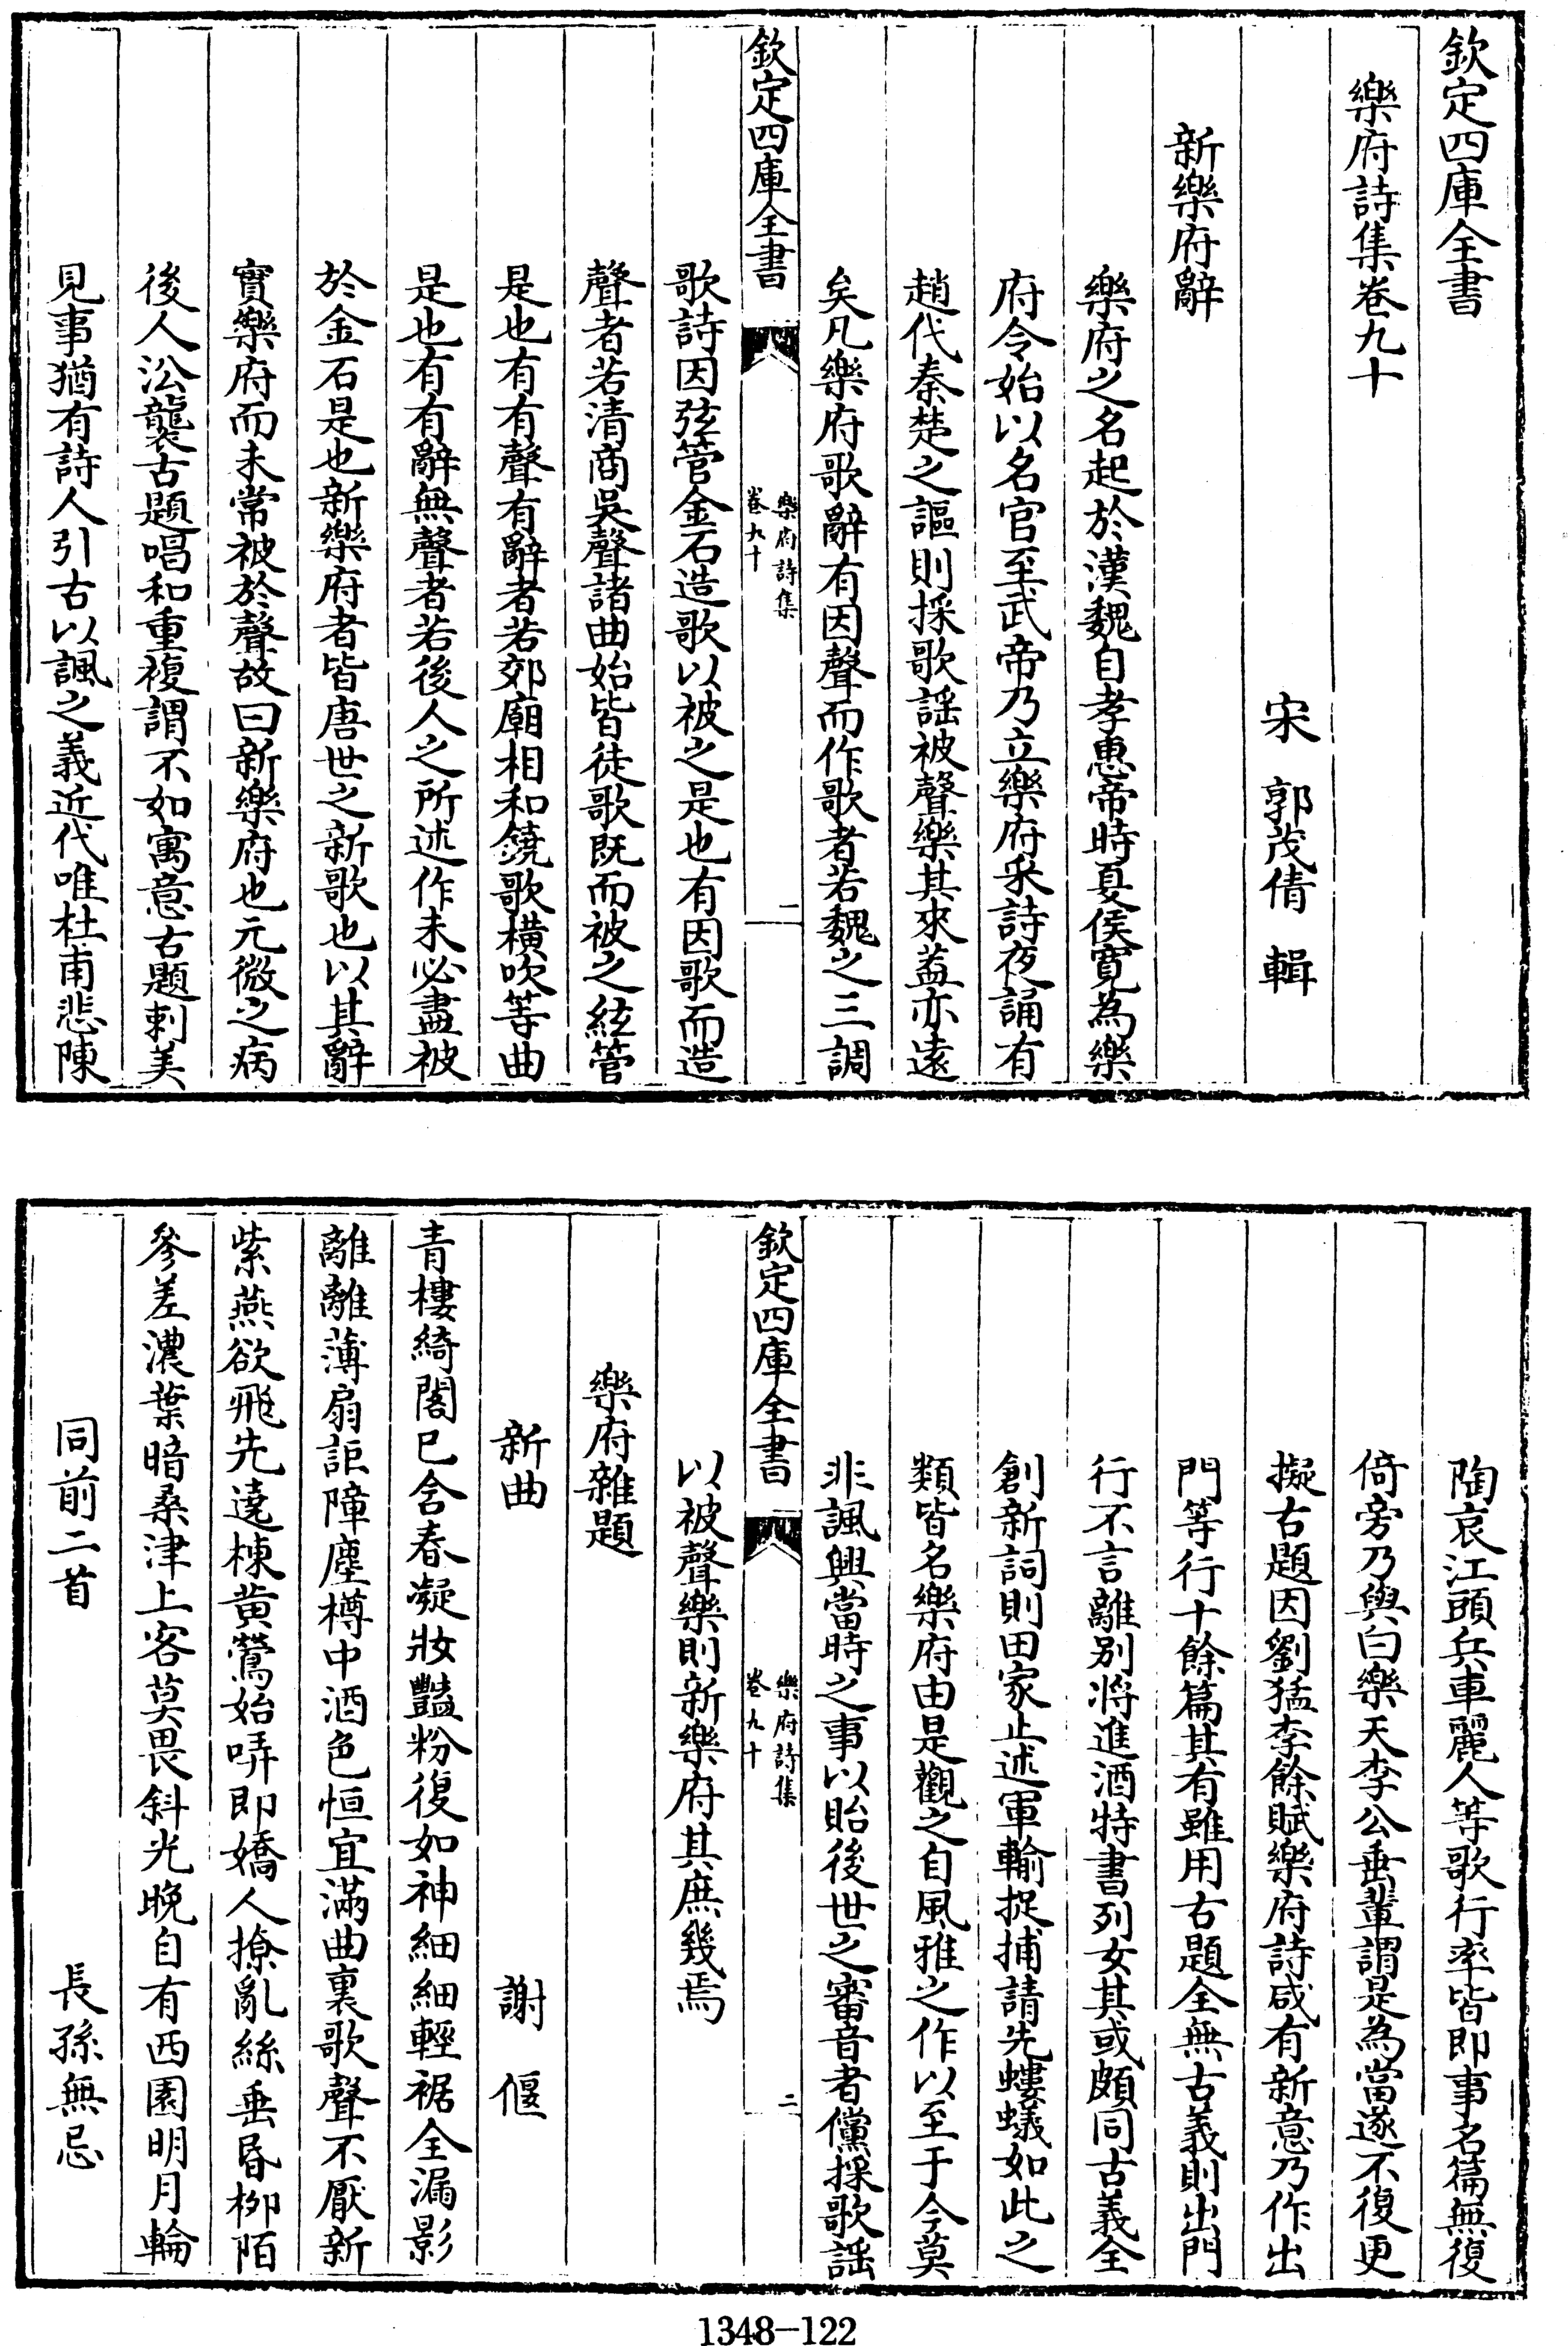 欽定四庫全書
樂府詩集卷九十
宋　郭茂倩　輯
新樂府辭
樂府之名起於漢魏自孝惠帝時夏侯寛為樂
府令始以名官至武帝乃立樂府采詩夜誦有
趙代秦楚之謳則採歌謡被聲樂其來葢亦遠
矣凡樂府歌辭有因聲而作歌者若魏之三調
欽定四庫全書
樂府詩集
卷九十
一
歌詩因弦管金石造歌以被之是也有因歌而造
聲者若清商吳聲諸曲始皆徒歌既而被之絃管
是也有有聲有辭者若郊廟相和鐃歌橫吹等曲
是也有有辭無聲者若後人之所述作未必盡被
於金石是也新樂府者皆唐世之新歌也以其辭
實樂府而未常被於聲故曰新樂府也元微之病
後人㳂襲古題唱和重複謂不如寓意古題刺美
見事猶有詩人引古以諷之義近代唯杜甫悲陳
陶哀江頭兵車麗人等歌行率皆即事名篇無復
倚旁乃與白樂天李公垂輩謂是為當遂不復更
擬古題因劉猛李餘賦樂府詩咸有新意乃作出
門等行十餘篇其有雖用古題全無古義則出門
行不言離别將進酒特書列女其或頗同古義全
創新詞則田家止述軍輸捉捕請先螻蟻如此之
類皆名樂府由是觀之自風雅之作以至于今莫
非諷興當時之事以貽後世之審音者儻採歌謡
欽定四庫全書
樂府詩集
卷九十
二
以被聲樂則新樂府其庶幾焉
樂府雜題
新曲　謝偃
青樓綺閣已含春凝妝豔粉復如神細細輕裾全漏影
離離薄扇詎障塵樽中酒色恒宜滿曲裏歌聲不厭新
紫燕欲飛先遶棟黄鶯始哢即嬌人撩亂絲垂昏柳陌
參差濃葉暗桑津上客莫畏斜光晚自有西園明月輪
同前二首　長孫無忌
1348-122